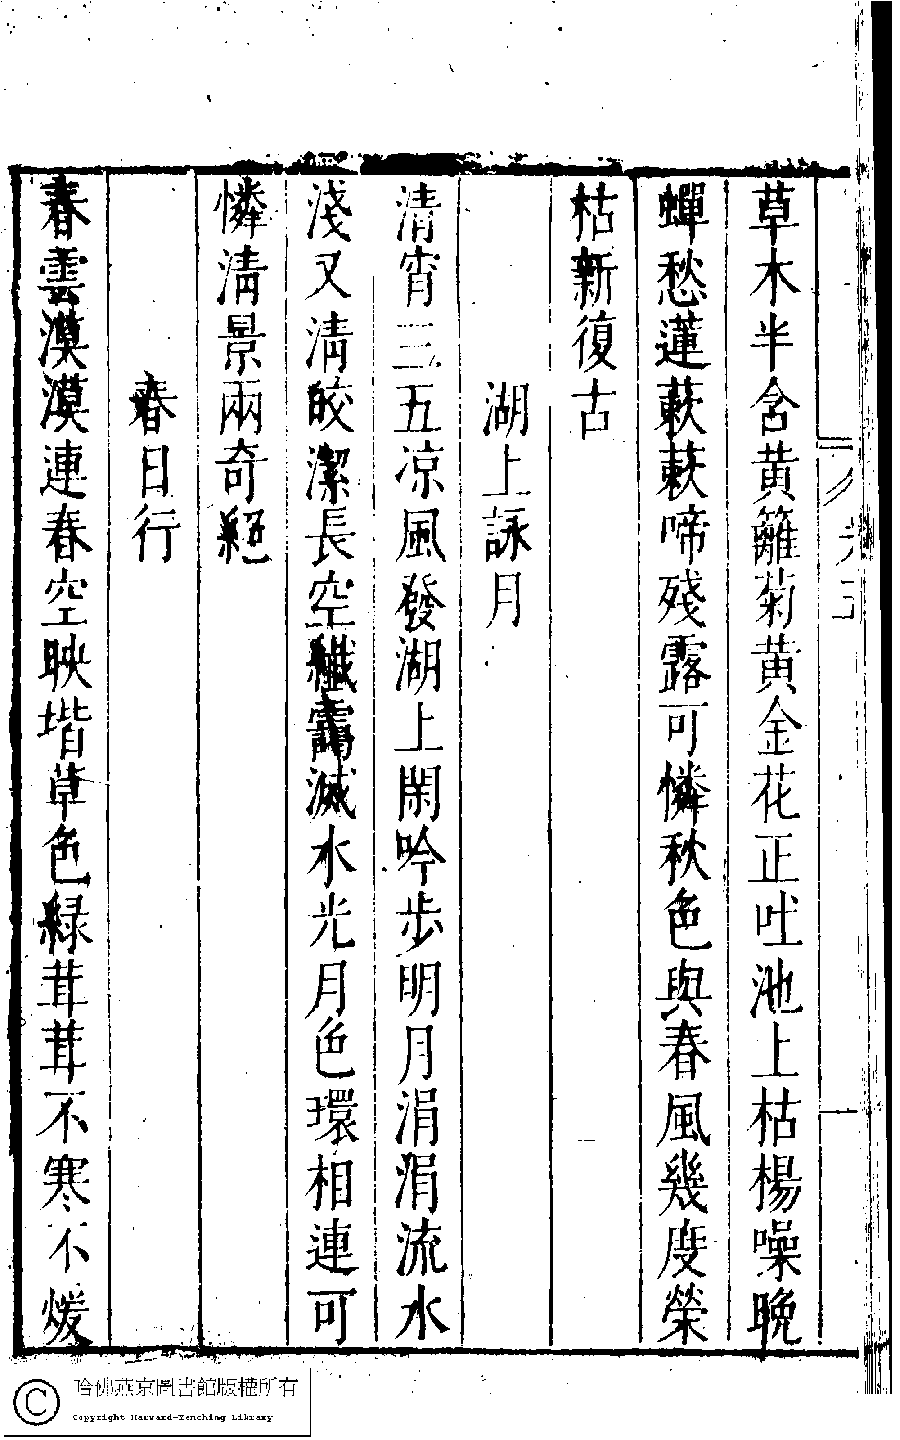 草木半含黄籬菊黄金花正吐池上枯楊噪晩
蟬愁蓮蔌蔌啼殘露可憐秋色與春風幾度榮
枯新復古
湖上詠月
清宵三五凉風發湖上閑吟步明月涓涓流水
淺又清皎潔長空纖靄滅水光月色環相連可
憐清景兩奇絕
春日行
春雲漠漠連春空映堦草色緑茸茸不寒不煖
哈佛燕京圖書館版權所有
Copyright Harvard-Yenching Library